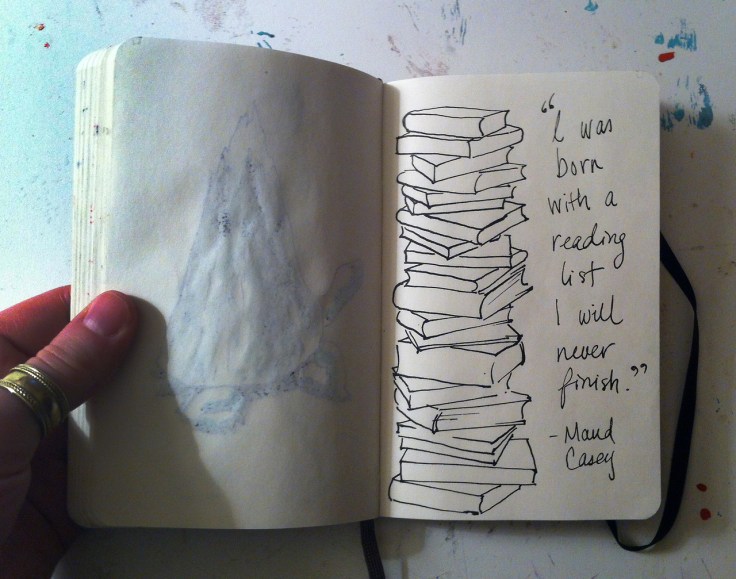 “I was
born
with a
reading
list
I will
never
finish.”
-Maud
Casey